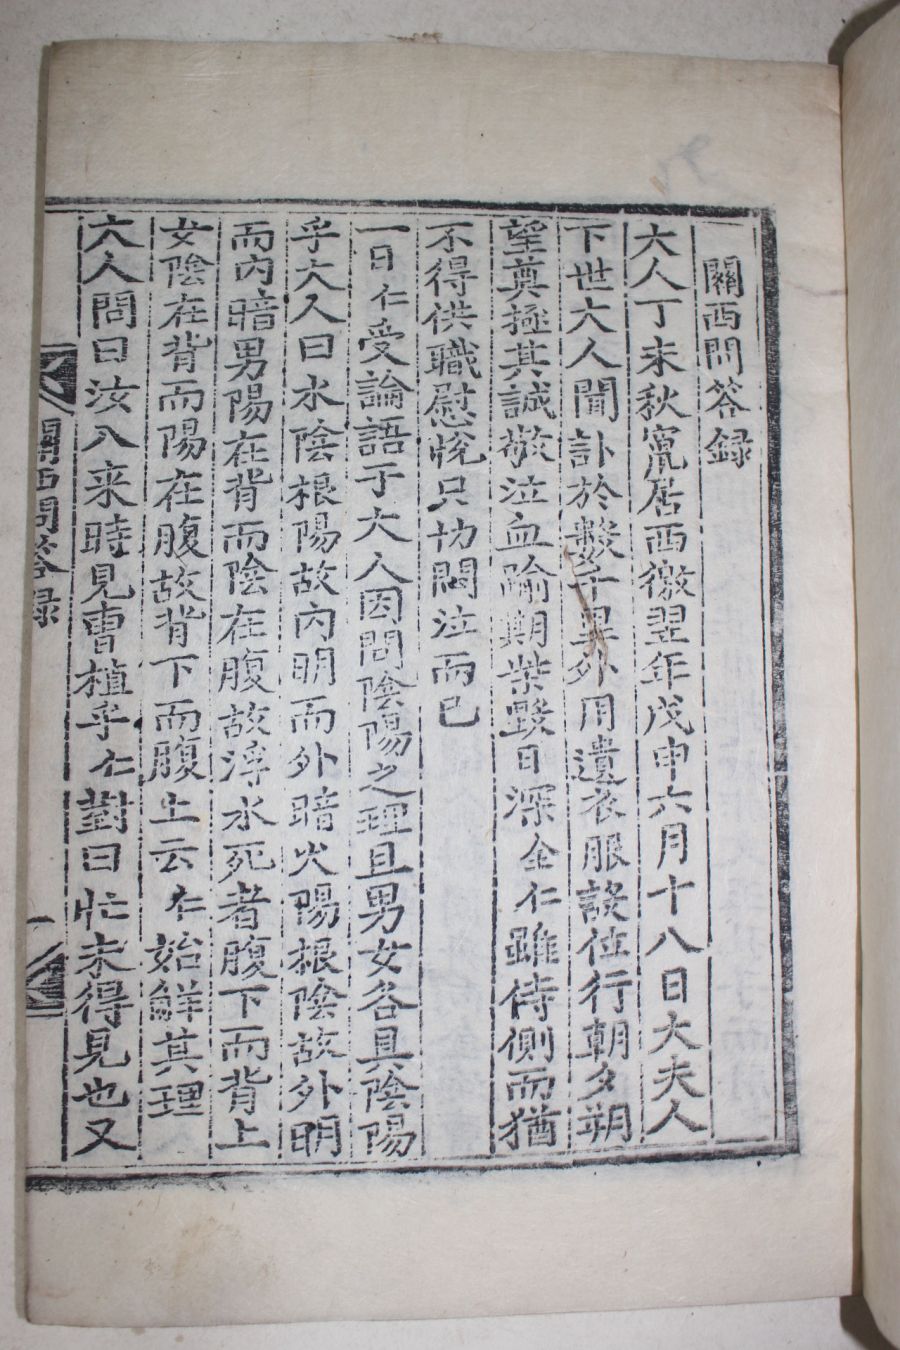 關西問答録
大人丁未秋竄居西徼翌年戊申六月十八日大夫人
下世大人聞訃於數千里外用遺衣服設位行朝夕朔
望奠極其誠敬泣血喻期柴毀日深全仁雖侍側而猶
不得供職慰悅只切悶泣而已
一日仁受論語于大人因問陰陽之理且男女各具陰陽
乎大人曰水陰根陽故內明而外暗火陽根陰故外明
而內暗男陽在背而陰在腹故浮水死者腹下而背上
女陰在背而陽在腹故背下而腹上云仁始解其理
大人問曰汝入来時見曺植乎仁對曰忙未得見也又
關西問答録
一